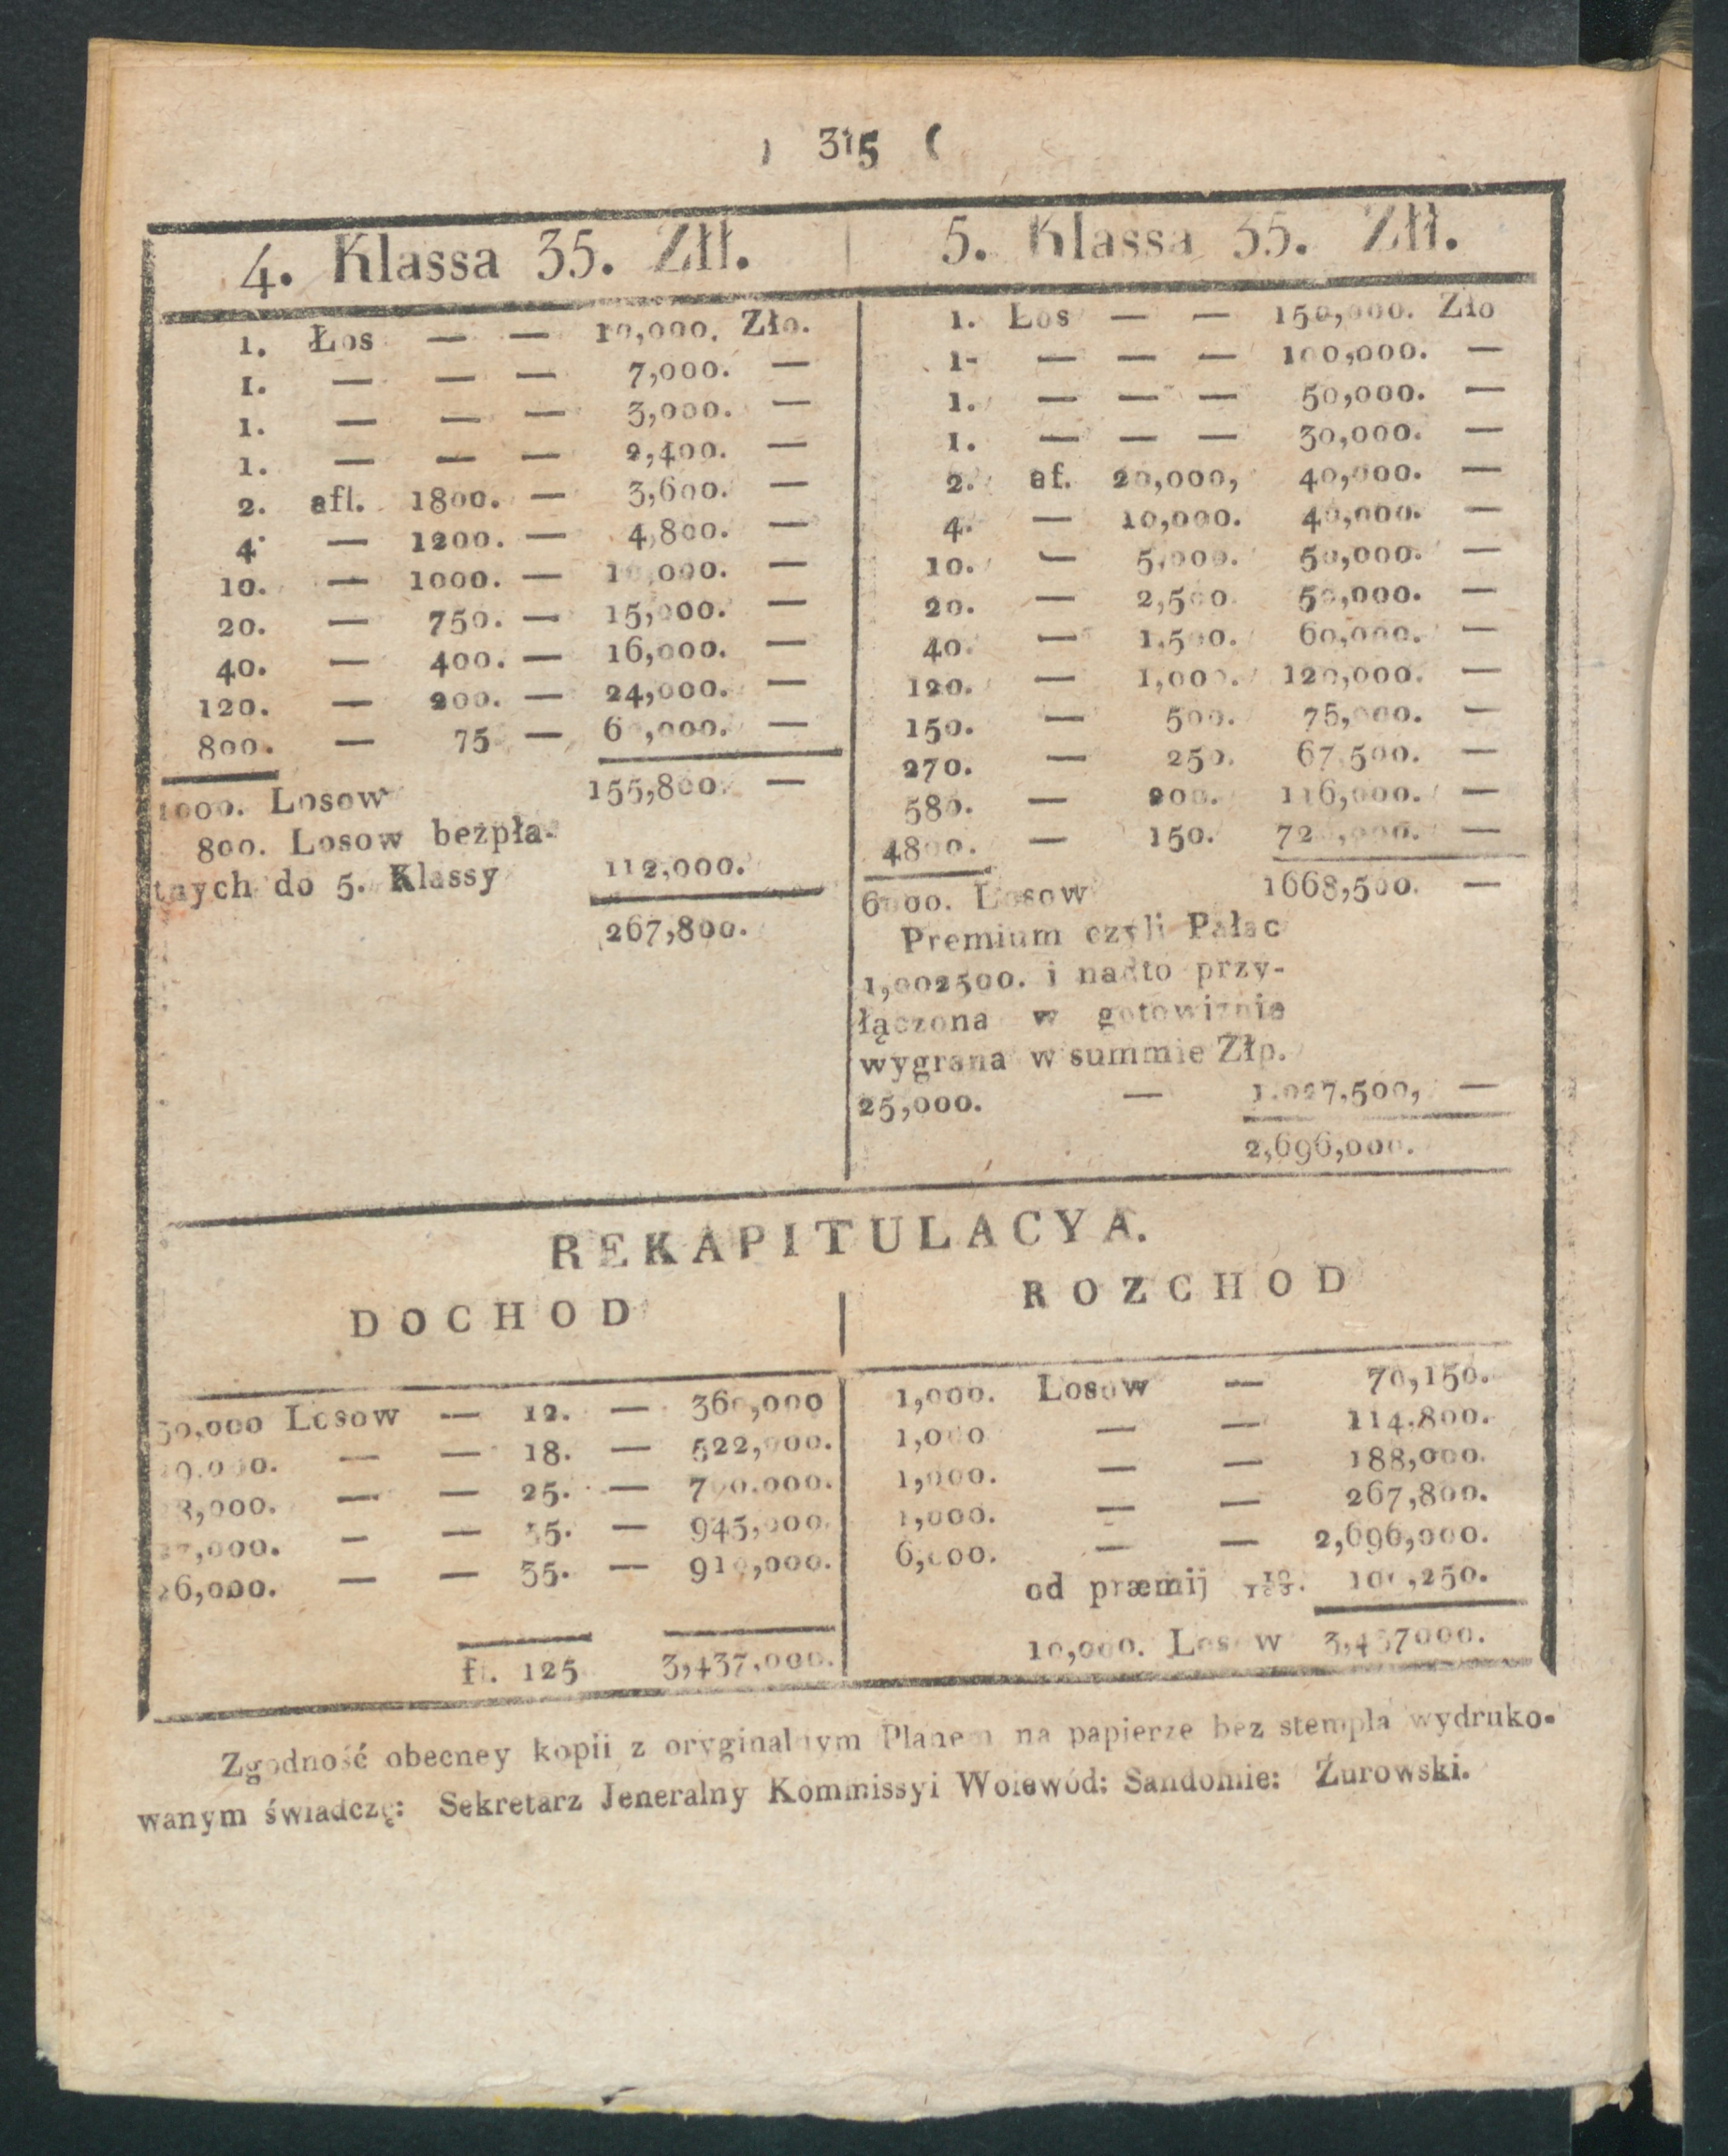 ) 315 (
4. Klassa 35. Złł.
1. Łos — — 10,000. Zło.
1. — — — 7,000. —
1. — — — 3,000. —
1. — — — 2,400. —
2. afl. 1800. — 3,600. —
4. — 1200. — 4,800. —
10. — 1000. — 10,000. —
20. — 750. — 15,000. —
40. — 400. — 16,000. —
120. — 200. — 24,000. —
800. — 75 — 60,000. —
1000. Losow 155,800. —
800. Losow bezpła-
tnych do 5. Klassy 112,000.
267,800.
5. Klassa 35. Złł.
1. Łos — — 150,000. Zło
1- — — — 100,000. —
1. — — — 50,000. —
1. — — — 30,000. —
2. af. 20,000, 40,000. —
4. — 10,000. 40,000. —
10. — 5,000. 50,000. —
20. — 2,500. 50,000. —
40. — 1,500. 60,000. —
120. — 1,000. 120,000. —
150. — 500. 75,000. —
270. — 250. 67,500. —
580. — 200. 116,000. —
4800. — 150. 720,000. —
6000. Losow 1668,500. —
Premium czyli Pałac
1,002500. i nadto przy-
łączona w gotowiznie
wygrana w summie Złp.
25,000. — 1.027,500, —
2,696,000.
REKAPITULACYA.
DOCHOD
30,000 Losow — 12. — 360,000
29.000. — — 18. — 522,000.
28,000. — — 25. — 700.000.
27,000. — — 35. — 945,000.
26,000. — — 35. — 910,000.
fl. 125 3,437,000.
ROZCHOD
1,000. Losow — 70,150.
1,000 — — 114.800.
1,000. — — 188,000.
1,000. — — 267,800.
6,000. — — 2,696,000.
od præmij 10/100. 100,250.
10,000. Losow 3,437000.
Zgodność obecney kopii z oryginalnym Planem na papierze bez stempla wydruko-
wanym świadczę: Sekretarz Jeneralny Kommissyi Woiewód: Sandomie: Żurowski.